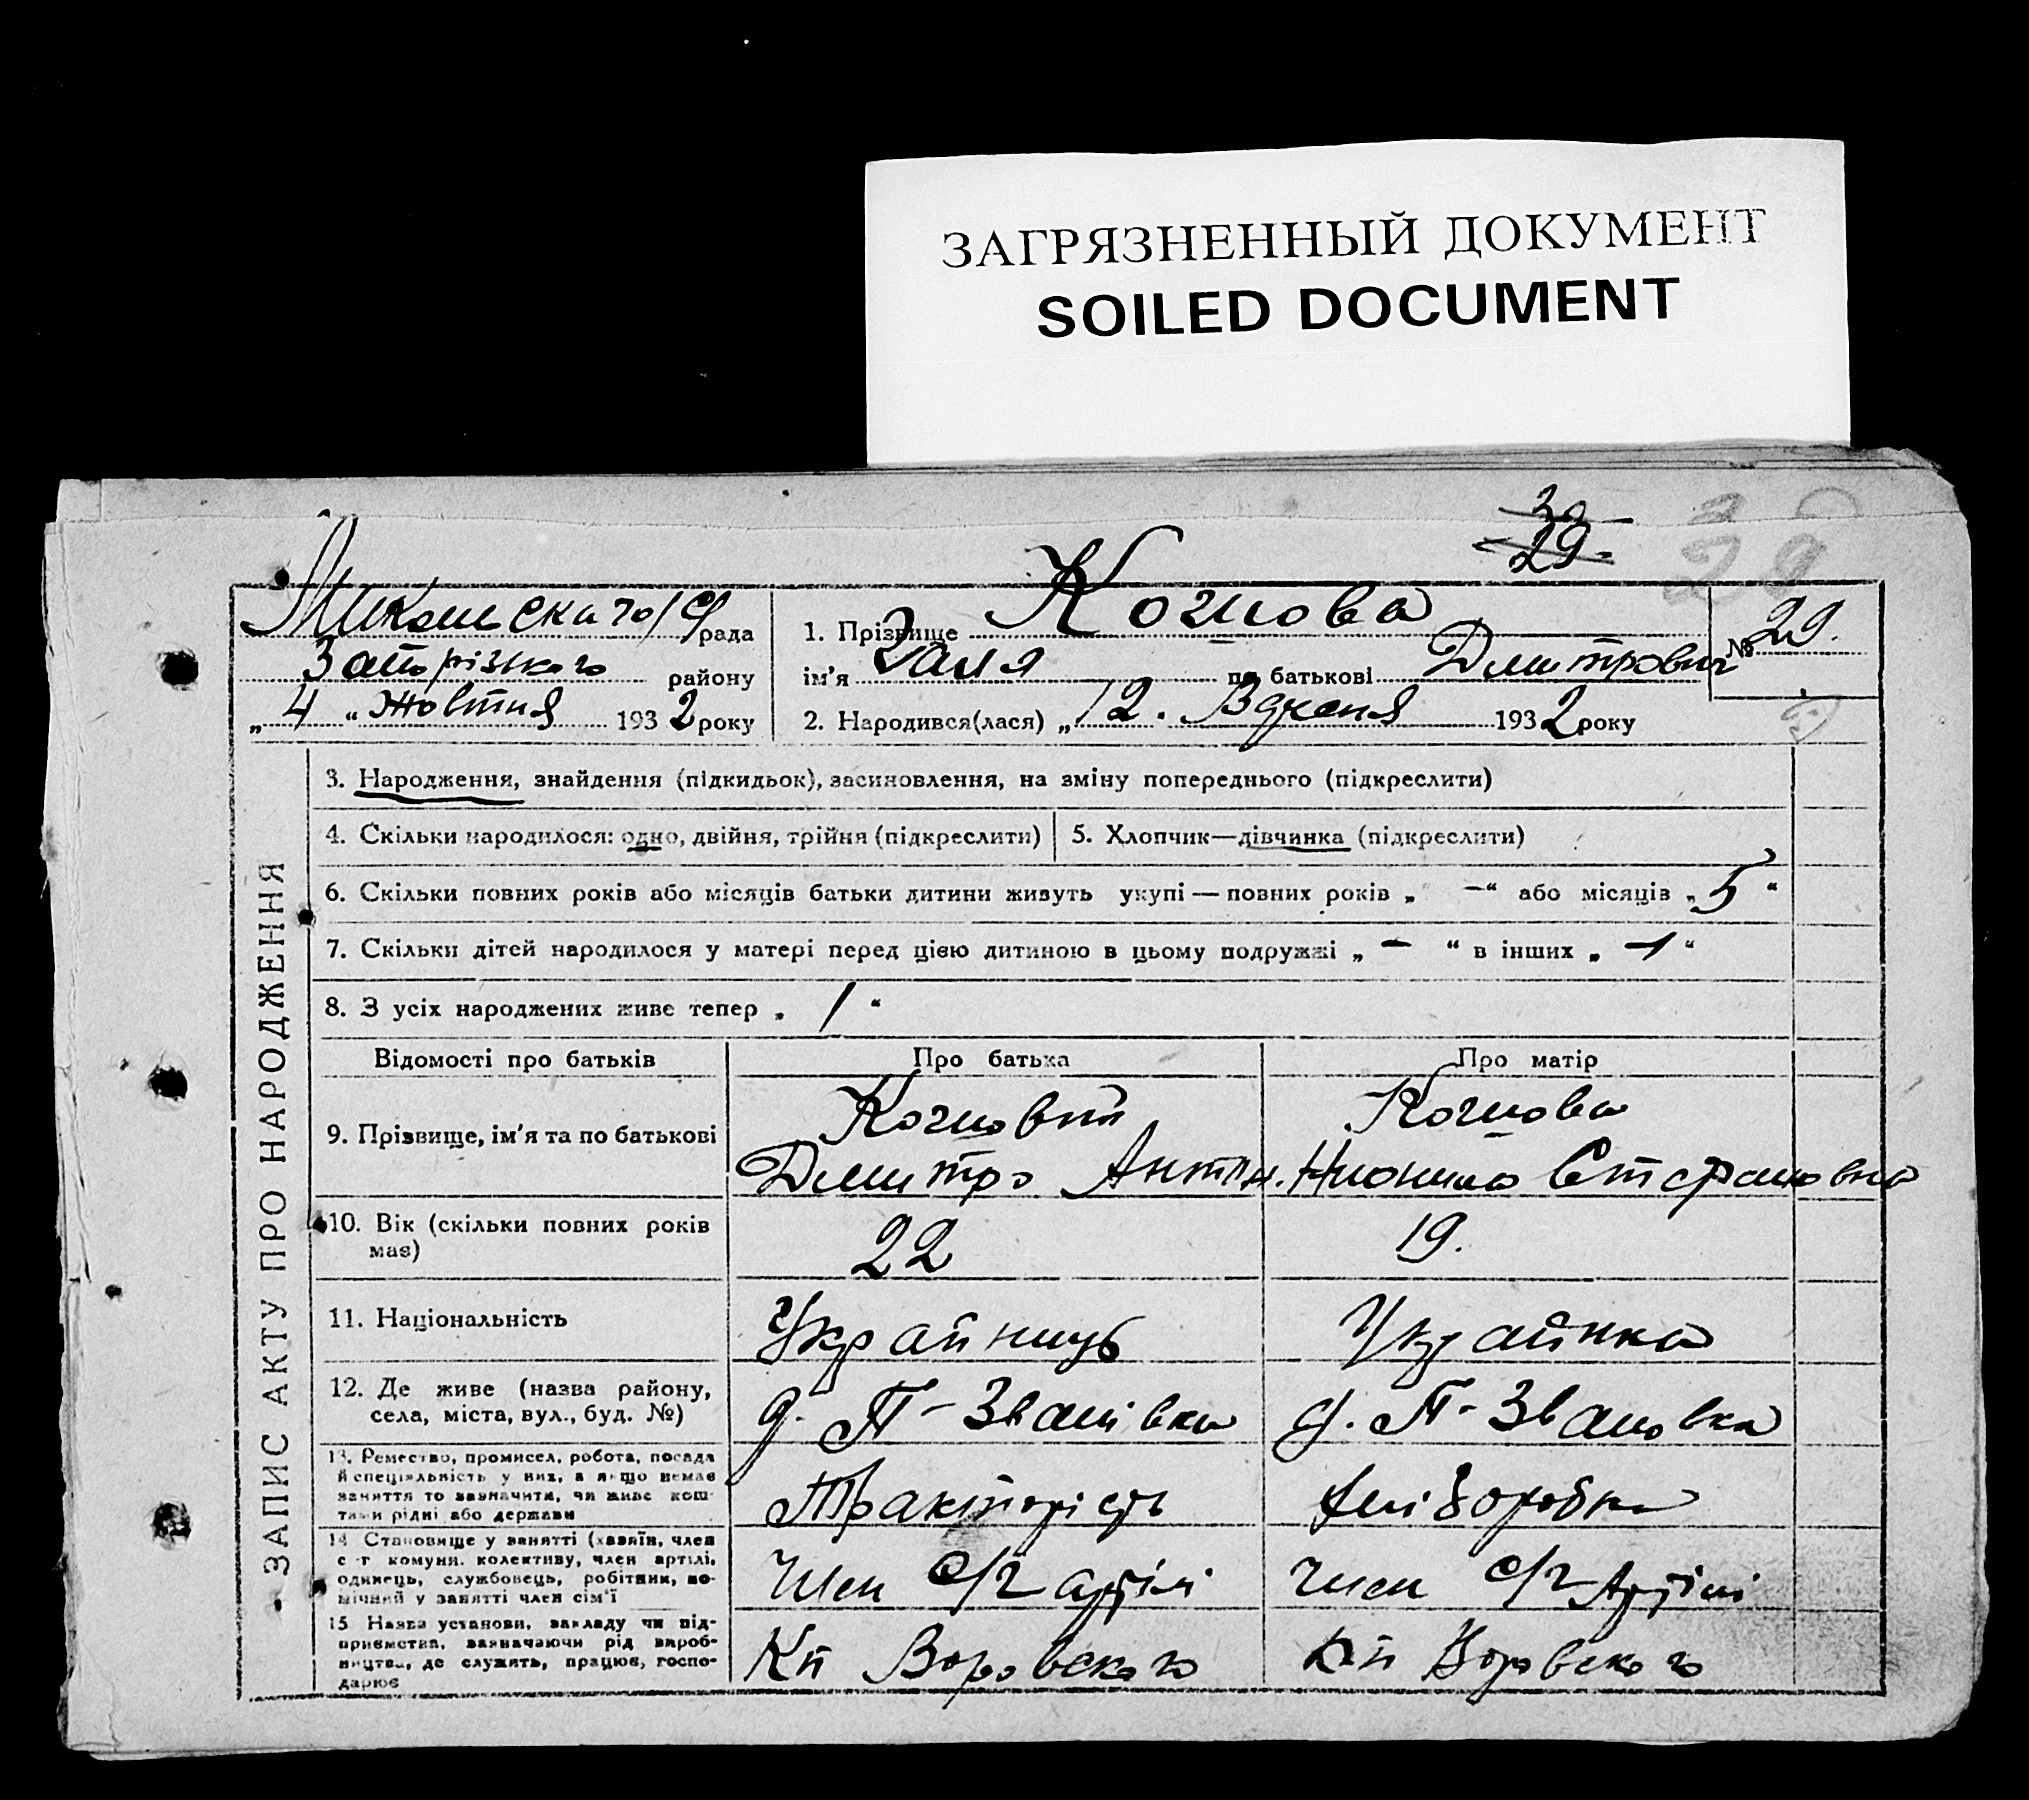 ЗАГРЯЗНЕННЫЙ ДОКУМЕНТ
SOILED DOCUMENT
29
29
рада
Запорізького району
„4“ Жовтня 1932 року
1. Прізвище
ім'я Галя по батькові Дмитрович
№ 29.
2. Народився(лася) „12. 1932 року
ЗАПИС АКТУ ПРО НАРОДЖЕННЯ
3. Народження, знайдення (підкидьок), засиновлення, на зміну попереднього (підкреслити)
4. Скільки народилося: одно, двійня, трійня (підкреслити)
5. Хлопчик—дівчинка (підкреслити)
6. Скільки повних років або місяців батьки дитини живуть укупі — повних років „ —“ або місяців „5“
7. Скільки дітей народилося у матері перед цією дитиною в цьому подружжі „ – “ в інших „ – “
8. З усіх народжених живе тепер „ 1 “
Відомості про батьків
Про батька
Про матір
9. Прізвище, ім'я та по батькові
Дмитро Антон.
10. Вік (скільки повних років
має)
22
19.
11. Національність
Українець
Українка
12. Де живе (назва району,
села, міста, вул., буд. №)
П-Званівка
с. П-Звановка
13. Ремество, промисел, робота, посада
й спеціяльність у них, а якщо немає
заняття то зазначити, чи живе кош-
тами рідні або держави
Тракторість
14 Становище у занятті (хазяїн, член
с-г комуни, колективу, член артілі,
одинець, службовець, робітник, по-
мічний у занятті член сім'ї
Член с/г артілі
Член с/г Артілі
15 Назва установи, закладу чи під-
приємства, зазначаючи рід вироб-
ництва, де служить, працює, госпо-
дарює
Кп Воровского
Кп Воровского